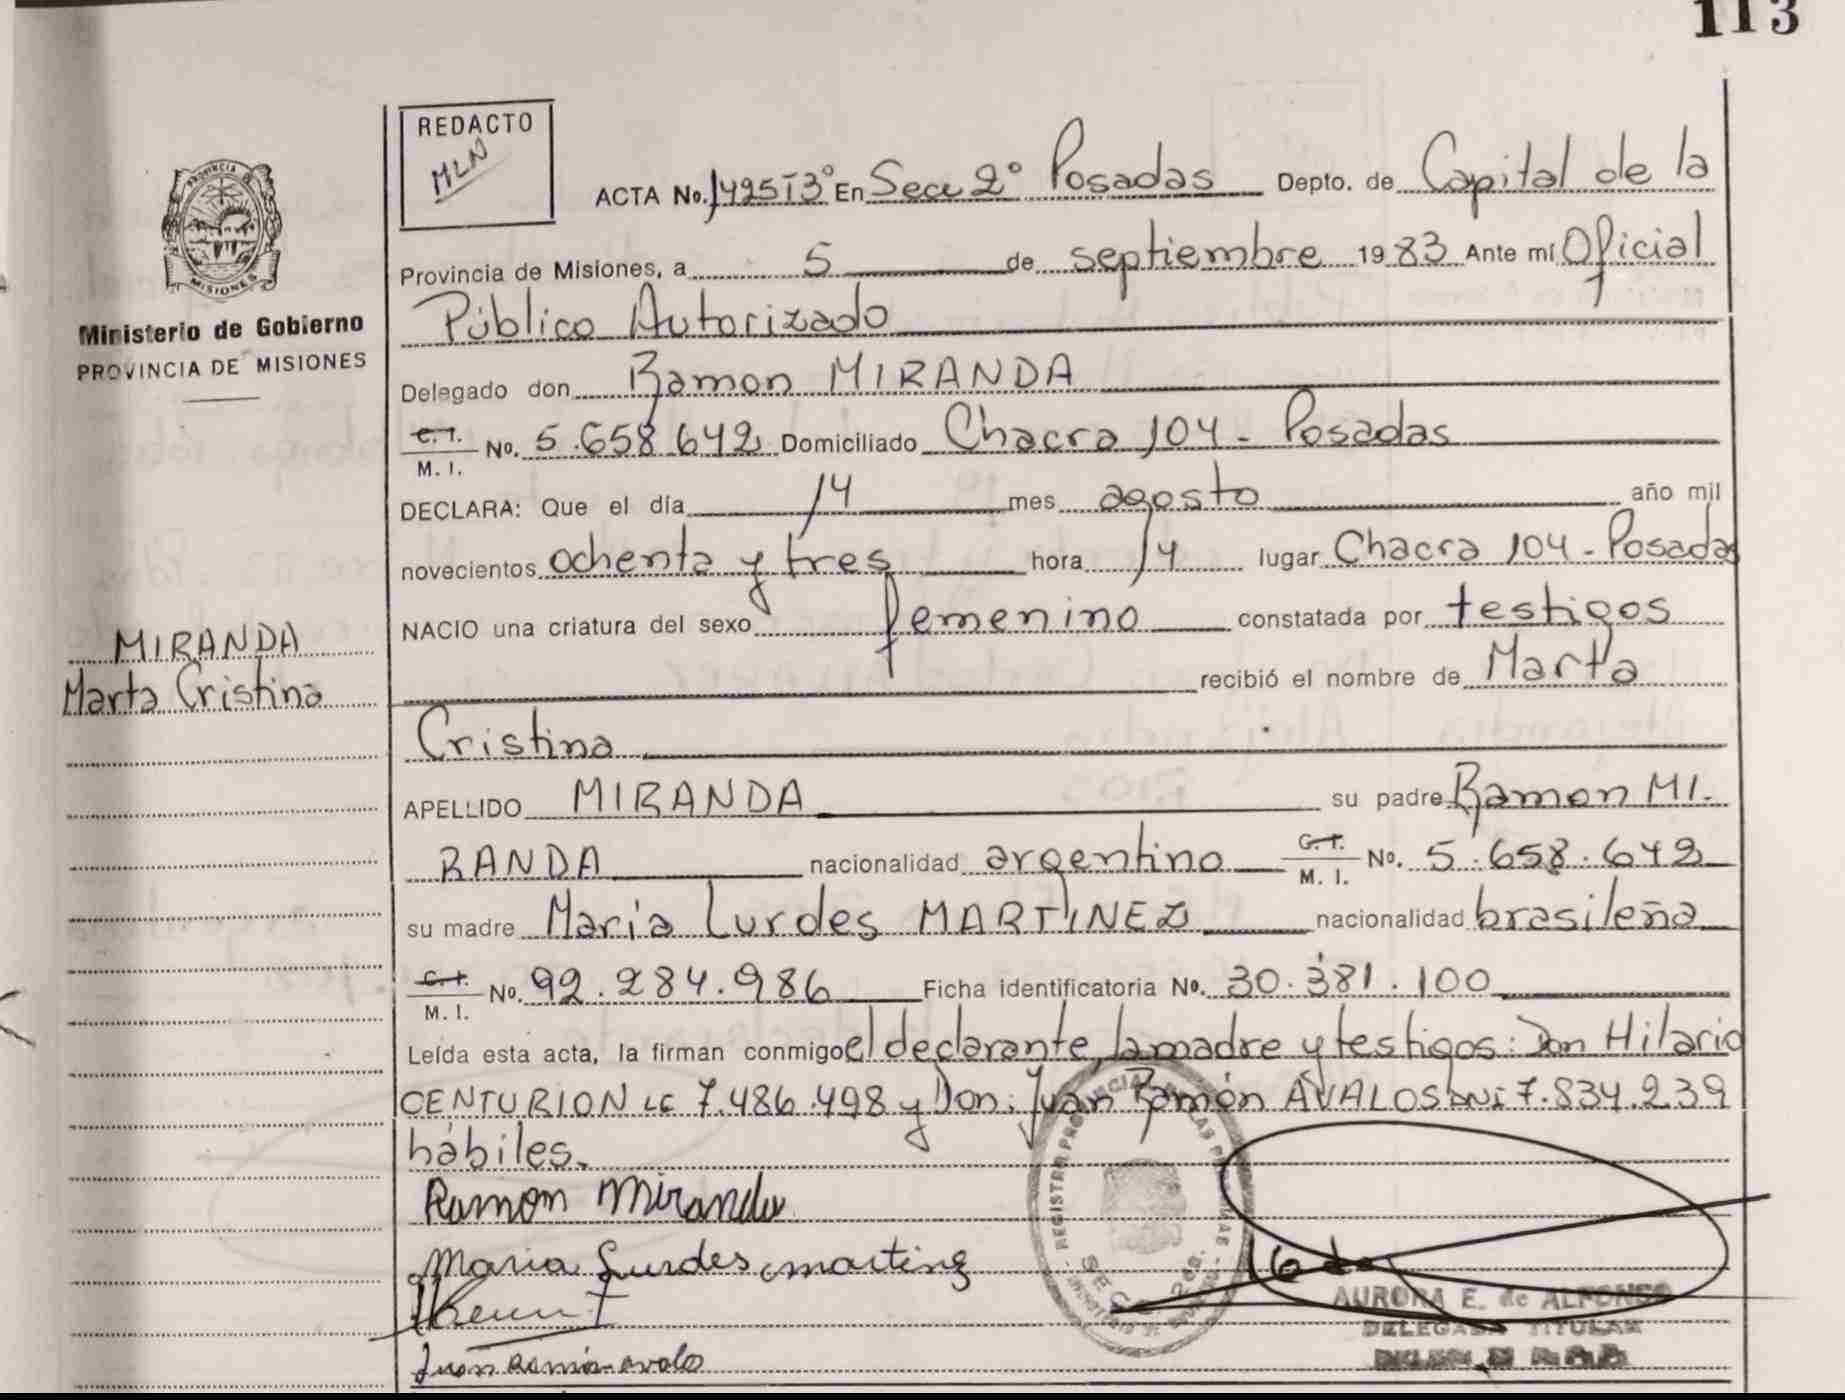 113
REDACTO
MLN
ACTA No. 1425T3° En Secc 2° Posadas Depto. de Capital de la
Provincia de Misiones, a 5 de septiembre 1983 Ante mí Oficial
Público Autorizado
Ministerio de Gobierno
PROVINCIA DE MISIONES
Delegado don Ramon MIRANDA
C. I. / M. I. No. 5.658.642 Domiciliado Chacra 104 - Posadas
DECLARA: Que el día 14 mes agosto año mil
novecientos ochenta y tres hora 14 lugar Chacra 104 - Posadas
NACIO una criatura del sexo femenino constatada por testigos
MIRANDA
Marta Cristina
recibió el nombre de Marta
Cristina
APELLIDO MIRANDA su padre Ramon MI-
RANDA nacionalidad argentino C. I. / M. I. No. 5.658.642
su madre Maria Lurdes MARTINEZ nacionalidad brasileña
C. I. / M. I. No. 92.284.986 Ficha identificatoria No. 30.381.100
Leída esta acta, la firman conmigo el declarante, la madre y testigos: Don Hilario
CENTURION LE 7.486.498 y Don: Juan Ramón AVALOS DNI 7.834.239
hábiles.
Ramon Miranda
Maria Lurdes Martinz
Juan Ramón Avalo
REGISTRO PROVINCIAL DE LAS PERSONAS
AURORA E. de ALFONSO
DELEGADA TITULAR
PROVINCIA DE
MISIONES